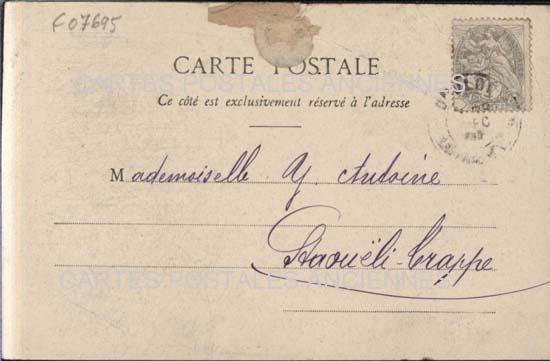 F07695
CARTE POSTALE
Ce côté est exclusivement réservé à l'adresse
Mademoiselle Y. Antoine
Staouëli-Trappe
CARTES POSTALES ANCIENNES
CARTES POSTALES ANCIENNES